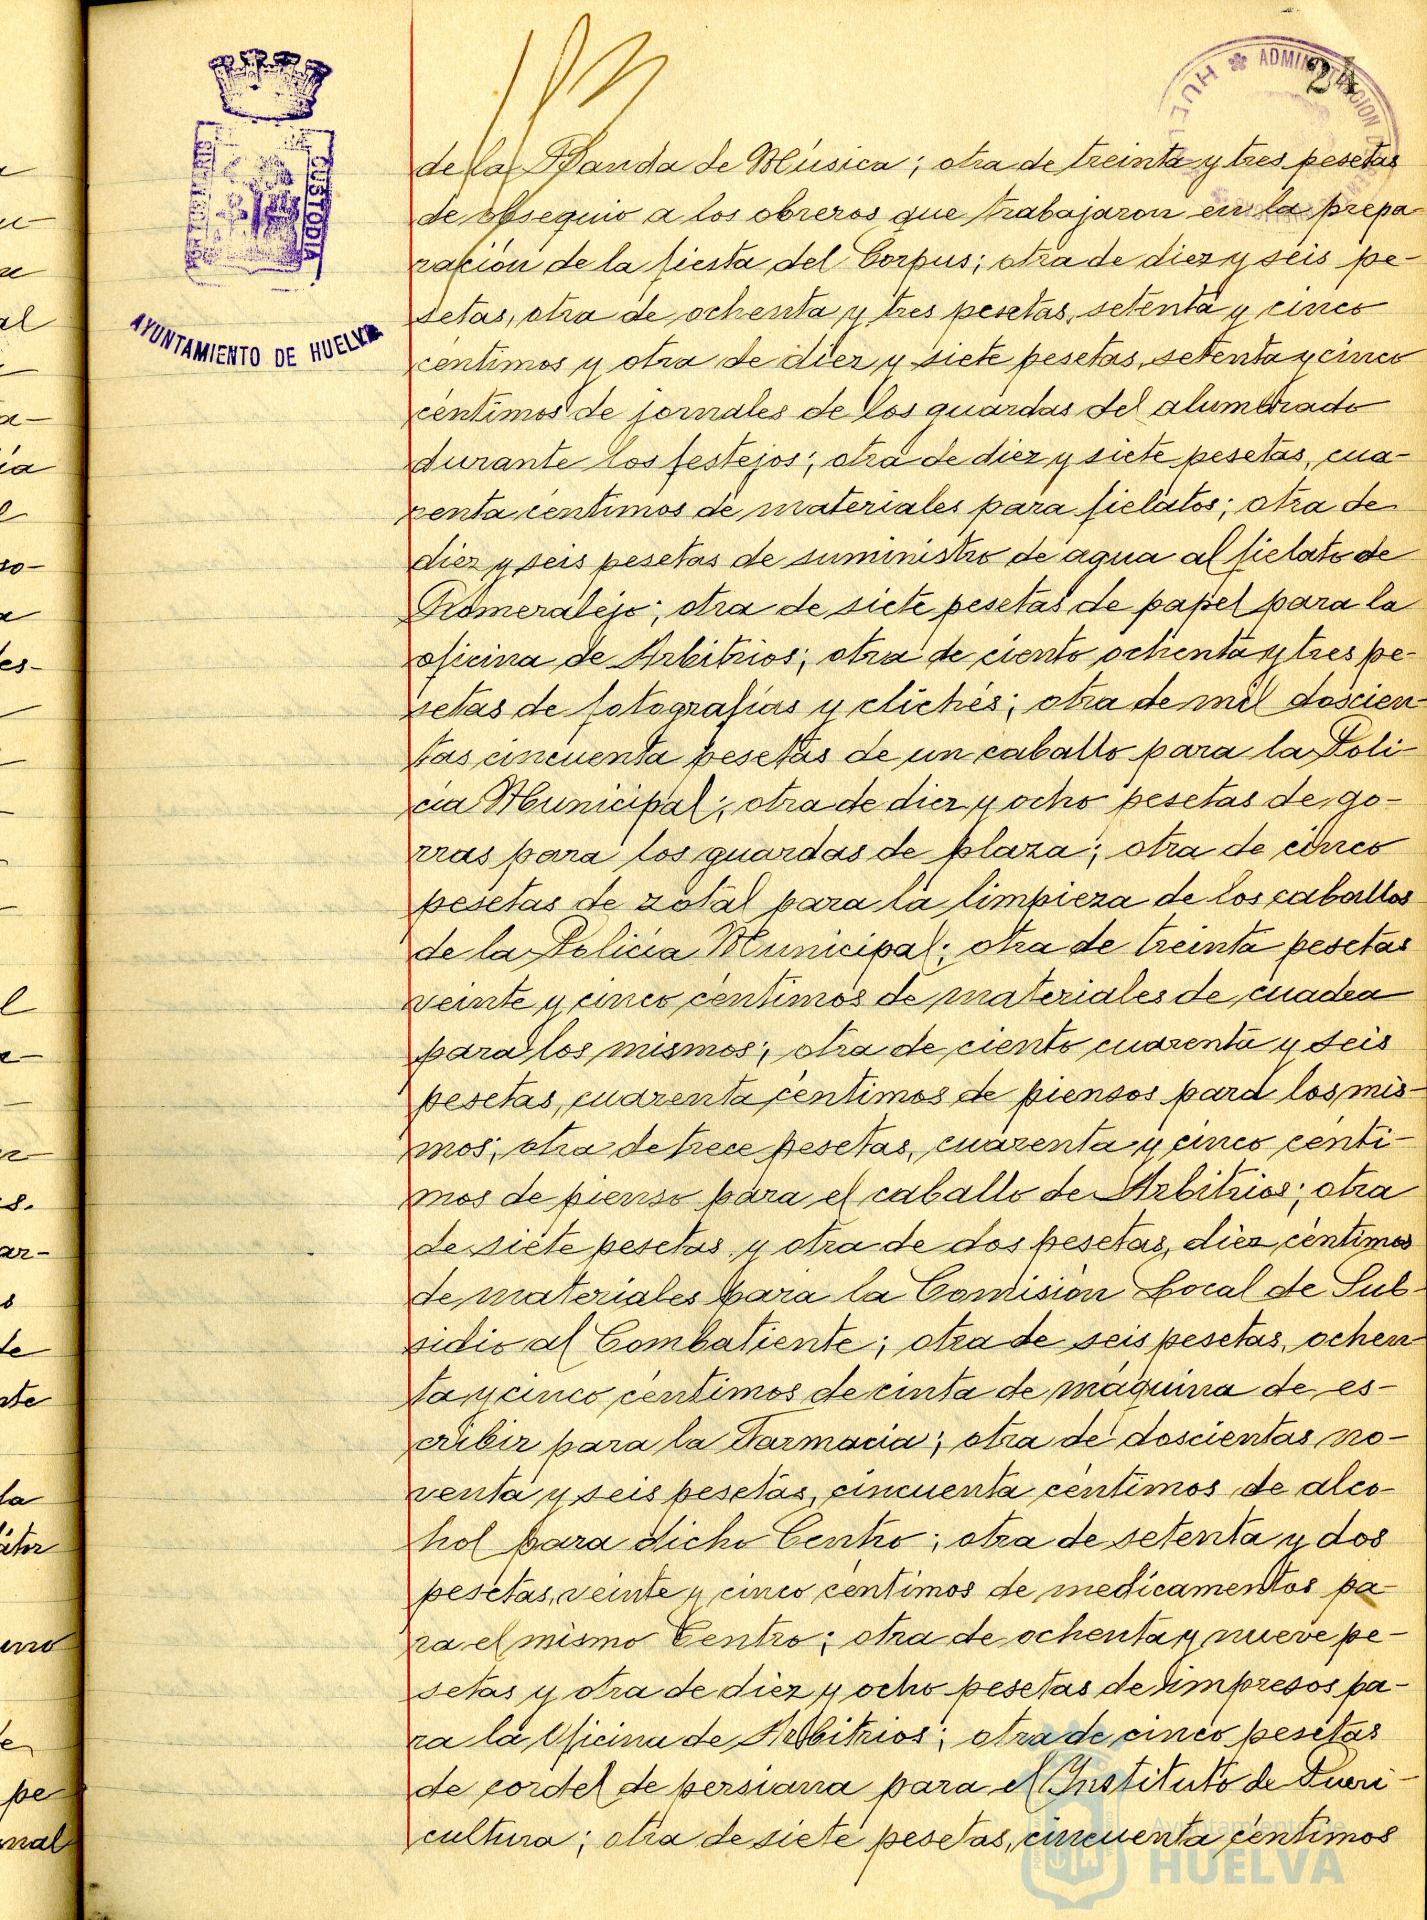 24
ADMINISTRACION
PORTUS MARIS
CUSTODIA
AYUNTAMIENTO DE HUELVA
de la Banda de Música; otra de treinta y tres pesetas
de obsequio a los obreros que trabajaron en la prepa-
ración de la fiesta del Corpus; otra de diez y seis pe-
setas, otra de ochenta y tres pesetas, setenta y cinco
céntimos y otra de diez y siete pesetas, setenta y cinco
céntimos de jornales de los guardas del alumbrado
durante los festejos; otra de diez y siete pesetas, cua-
renta céntimos de materiales para fielatos; otra de
diez y seis pesetas de suministro de agua al fielato de
Romeralejo; otra de siete pesetas de papel para la
oficina de Arbitrios; otra de ciento ochenta y tres pe-
setas de fotografías y clichés; otra de mil doscien-
tas cincuenta pesetas de un caballo para la Poli-
cía Municipal; otra de diez y ocho pesetas de go-
rras para los guardas de plaza; otra de cinco
pesetas de zotal para la limpieza de los caballos
de la Policía Municipal; otra de treinta pesetas
veinte y cinco céntimos de materiales de cuadra
para los mismos; otra de ciento cuarenta y seis
pesetas, cuarenta céntimos de piensos para los mis-
mos; otra de trece pesetas, cuarenta y cinco cénti-
mos de pienso para el caballo de Arbitrios; otra
de siete pesetas y otra de dos pesetas, diez céntimos
de materiales para la Comisión Local de Sub-
sidio al Combatiente; otra de seis pesetas, ochen-
ta y cinco céntimos de cinta de máquina de es-
cribir para la Farmacia; otra de doscientas no-
venta y seis pesetas, cincuenta céntimos de alco-
hol para dicho Centro; otra de setenta y dos
pesetas, veinte y cinco céntimos de medicamentos pa-
ra el mismo Centro; otra de ochenta y nueve pe-
setas y otra de diez y ocho pesetas de impresos pa-
ra la Oficina de Arbitrios; otra de cinco pesetas
de cordel de persiana para el Instituto de Pueri-
cultura; otra de siete pesetas, cincuenta céntimos
Ayuntamiento de
HUELVA